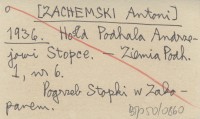 [ZACHEMSKI Antoni]
1936. Hołd Podhala Andrze-
jowi Stopce. — Ziemia Podh.
1, nr 6.
Pogrzeb Stopki w Zako-
panem.